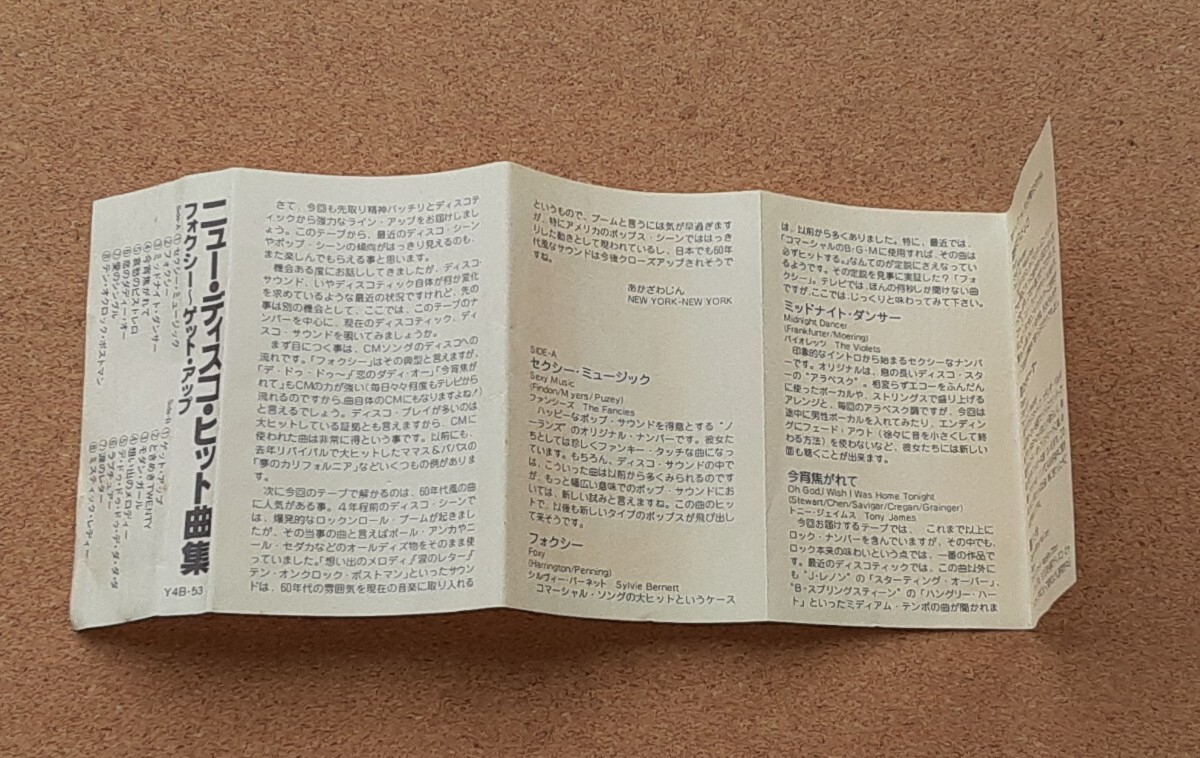 ニュー・ディスコ・ヒット曲集
フォクシー〜ゲット・アップ
Y4B-53
Side-A ①セクシー・ミュージック
②フォクシー
③ミッドナイト・ダンサー
④今宵焦がれて
⑤哀愁のピストル
⑦愛のシグナル
⑧テン・オクロック・ポストマン
①ゲット・アップ
②ときめきTWENTY
④想い出のメロディー
⑤デ・ドゥ・ドゥ・デ・ダ・ダ・ダ
⑦涙のレター
⑧ミスティック・レディー
さて、今回も先取り精神バッチリとディスコテ
ィックから強力なライン・アップをお届けしまし
ょう。このテープから、最近のディスコ・シーン
やポップ・シーンの傾向がはっきり見えるのも、
また楽しんでもらえる事と思います。
機会ある度にお話ししてきましたが、ディスコ・
サウンド、いやディスコティック自体が何か変化
を求めているような最近の状況ですけれど、先の
事は別の機会として、ここでは、このテープのナ
ンバーを中心に、現在のディスコティック、ディ
スコ・サウンドを覗いてみましょうか。
まず目につく事は、CMソングのディスコへの
流れです。「フォクシー」はその典型と言えますが、
「デ・ドゥ・ドゥ〜」「恋のダディ・オー」「今宵焦が
れて」もCMの力が強い(毎日々々何度もテレビから
流れるのですから、曲自体のCMにもなりますよね!)
と言えるでしょう。ディスコ・プレイが多いのは
大ヒットしている証拠とも言えますから、CMに
使われた曲は非常に得という事です。以前にも、
去年リバイバルで大ヒットしたママス&パパスの
「夢のカリフォルニア」などいくつもの例がありま
す。
次に今回のテープで解かるのは、60年代風の曲
に人気がある事。4年程前のディスコ・シーンで
は、爆発的なロックンロール・ブームが起きまし
たが、その当事の曲と言えばポール・アンカやニ
ール・セダカなどのオールディズ物をそのまま使
っていました。「想い出のメロディ」「涙のレター」
「テン・オンクロック・ポストマン」といったサウン
ドは、60年代の雰囲気を現在の音楽に取り入れる
というもので、ブームと言うには気が早過ぎます
が、特にアメリカのポップス・シーンでははっき
りした動きとして現われているし、日本でも60年
代風なサウンドは今後クローズアップされそうで
すね。
あかざわじん
NEW YORK-NEW YORK
SIDE-A
セクシー・ミュージック
Sexy Music
(Findon/Myers/Puzey)
ファンシーズ The Fancies
ハッピーなポップ・サウンドを得意とする“ノ
ーランズ”のオリジナル・ナンバーです。彼女た
ちとしては珍しくファンキー・タッチな曲になっ
ています。もちろん、ディスコ・サウンドの中で
は、こういった曲は以前から多くみられるのです
が、もっと幅広い意味でのポップ・サウンドにお
いては、新しい試みと言えますね。この曲のヒッ
トで、以後も新しいタイプのポップスが飛び出し
て来そうです。
フォクシー
Foxy
(Harrington/Penning)
シルヴィー・バーネット Sylvie Bernett
コマーシャル・ソングの大ヒットというケース
は、以前から多くありました。特に、最近では、
「コマーシャルのB・G・Mに使用すれば、その曲は
必ずヒットする。」なんてのが定説にさえなってい
るようです。その定説を見事に実証した?「フォ
クシー」。テレビでは、ほんの何秒しか聞けない曲
ですが、ここでは、じっくりと味わってみて下さい。
ミッドナイト・ダンサー
Midnight Dancer
(Frankfurter/Moering)
バイオレッツ The Violets
印象的なイントロから始まるセクシーなナンバ
ーです。オリジナルは、息の長いディスコ・スタ
ーの“アラベスク”。相変らずエコーをふんだん
に使ったボーカルや、ストリングスで盛り上げる
アレンジと、毎回のアラベスク調ですが、今回は
途中に男性ボーカルを入れてみたり、エンディン
グにフェード・アウト(徐々に音を小さくして終
わる方法)を使わないなど、彼女たちには新しい
面も聴くことが出来ます。
今宵焦がれて
Oh God,I Wish I Was Home Tonight
(Stewart/Chen/Savigar/Cregan/Grainger)
トニー・ジェイムス Tony James
今回お届けするテープでは、 これまで以上に
ロック・ナンバーを含んでいますが、その中でも、
ロック本来の味わいという点では、一番の作品で
す。最近のディスコティックでは、この曲以外に
も“J・レノン”の「スターティング・オーバー」、
“B・スプリングスティーン”の「ハングリー・ハー
ト」といったミディアム・テンポの曲が聞かれま